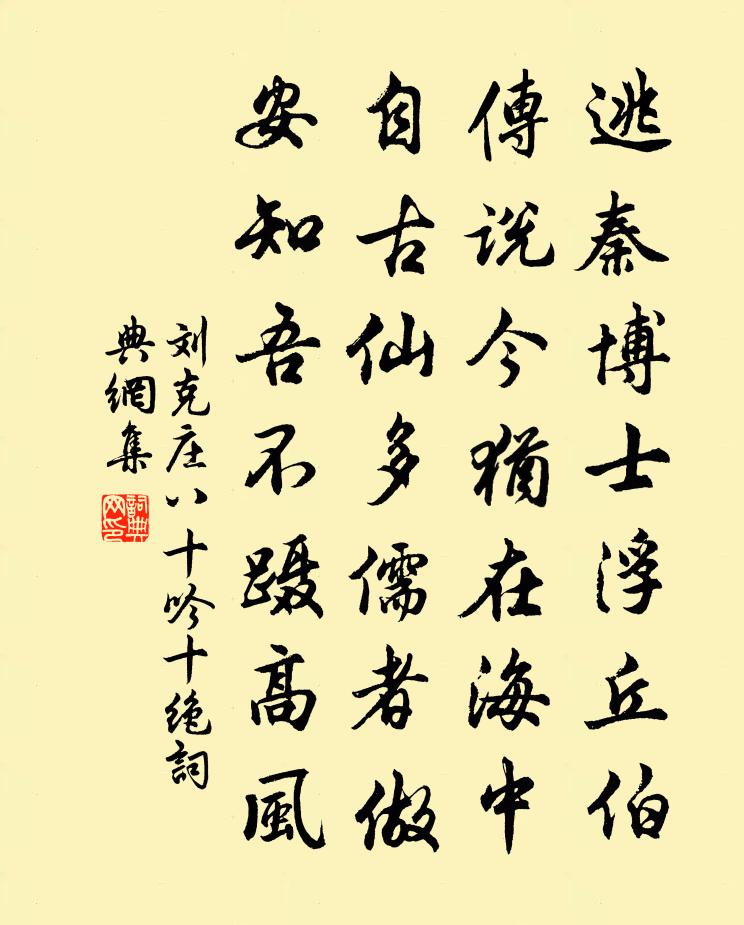 逃秦博士浮丘伯
傳说今猶在海中
自古仙多儒者做
安知吾不蹑高風
刘克庄八十吟十绝詞
典網集
詞典网印